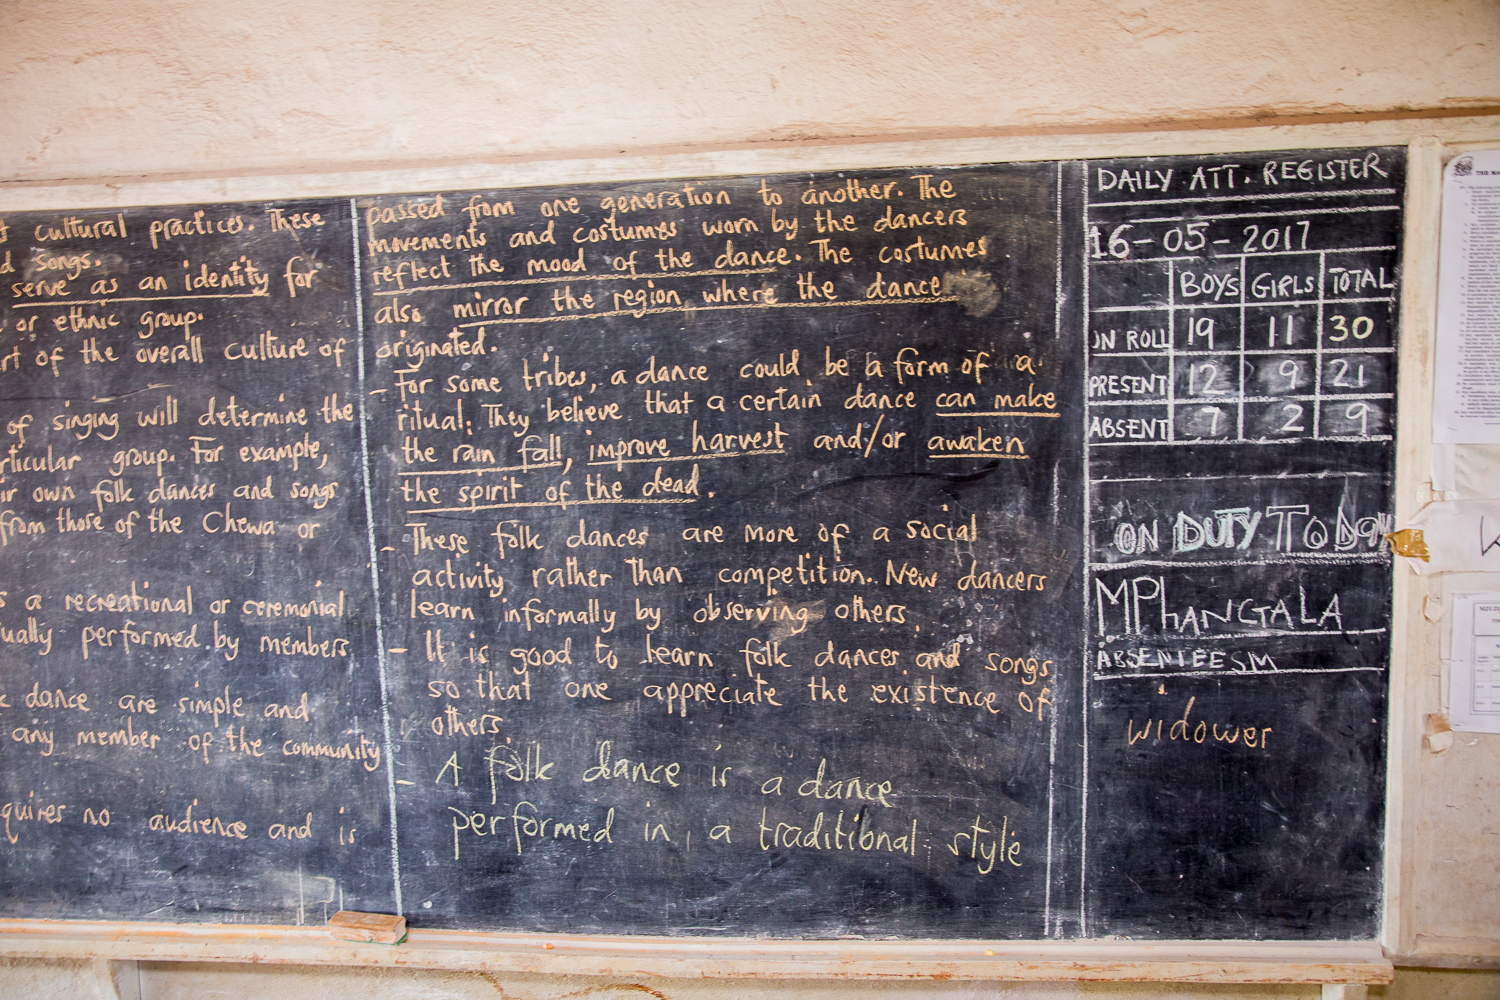 cultural practices. These
songs.
serve as an identity for
or ethnic group.
of the overall culture of
of singing will determine the
group. For example,
own folk dances and songs
from those of the Chewa or
a recreational or ceremonial
performed by members
dance are simple and
any member of the community
no audience and is
passed from one generation to another. The
movements and costumes worn by the dancers
reflect the mood of the dance. The costumes
also mirror the region where the dance
originated.
- For some tribes, a dance could be a form of a
ritual. They believe that a certain dance can make
the rain fall, improve harvest and/or awaken
the spirit of the dead.
- These folk dances are more of a social
activity rather than competition. New dancers
learn informally by observing others.
- It is good to learn folk dances and songs
so that one appreciate the existence of
others.
- A folk dance is a dance
performed in a traditional style
DAILY ATT. REGISTER
16-05-2017
BOYS GIRLS TOTAL
IN ROLL 19 11 30
PRESENT 12 9 21
ABSENT 7 2 9
ON DUTY TODAY
MPHANGALA
ABSENTEESM
widower